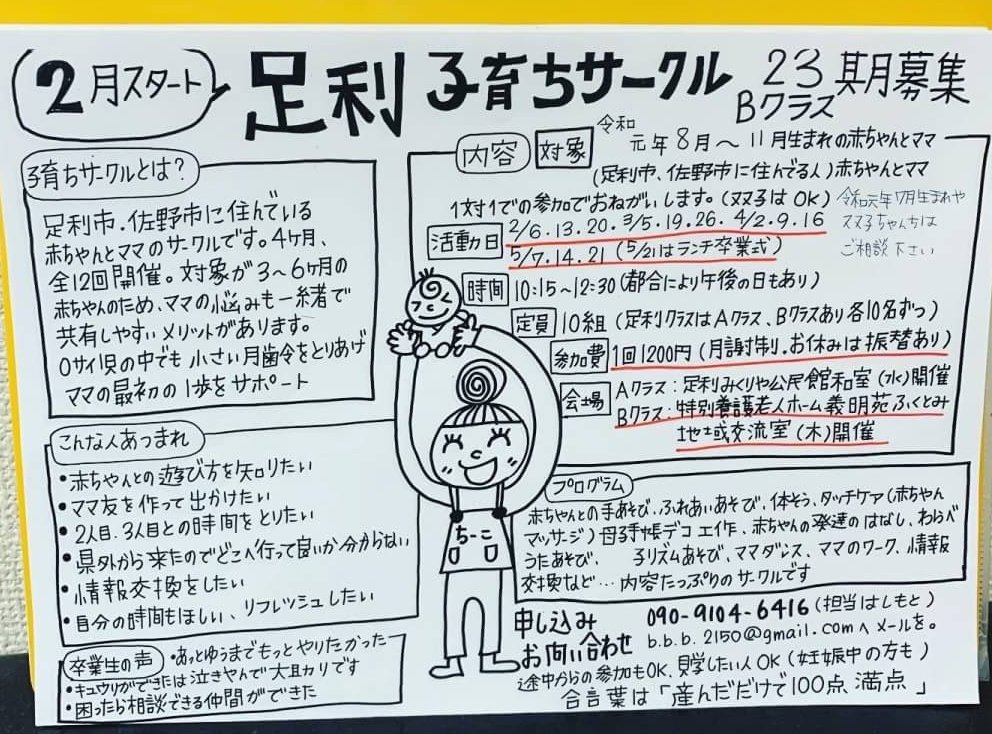 2月スタート
足利 子育ちサークル 23期募集
Bクラス
子育ちサークルとは?
足利市、佐野市に住んでいる
赤ちゃんとママのサークルです。4ヶ月、
全12回開催。対象が3〜6ヶ月の
赤ちゃんのため、ママの悩みも一緒で
共有しやすいメリットがあります。
0サイ児の中でも小さい月歯令をとりあげ
ママの最初の1歩をサポート
こんな人あつまれ
・赤ちゃんとの遊び方を知りたい
・ママ友を作って出かけたい
・2人目、3人目との時間をとりたい
・県外から来たのでどこへ行って良いか分からない
・情報交換をしたい
・自分の時間もほしい、リフレッシュしたい
卒業生の声
・あっとゆうまでもっとやりたかった
・キュウリができたは泣きやんで大助カリです
・困ったら相談できる仲間ができた
内容
対象 令和元年8月〜11月生まれの赤ちゃんとママ
(足利市、佐野市に住んでる人)赤ちゃんとママ
1対1での参加でおねがいします。(ヌヌ子はOK)
令和元年7月生まれや
ヌヌ子ちゃんちは
ご相談下さい
活動日 2/6.13.20.3/5.19.26.4/2.9.16
5/7.14.21(5/21はランチ卒業式)
時間 10:15〜12:30(都合により午後の日もあり)
定員 10組(足利クラスはAクラス、Bクラスあり各10名ずつ)
参加費 1回1200円(月謝制り.お休みは振替あり)
会場 Aクラス:足利みくりや公民館和室(水)開催
Bクラス:特別養護老人ホーム義明苑ふくとみ
地域交流室(木)開催
ちーこ
プログラム
赤ちゃんとの手あそび、ふれあいあそび、体そう、タッチケア(赤ちゃん
マッサジ)母子手帳デコ工作、赤ちゃんの発達のはなし、わらべ
うたあそび、 子リズムあそび、ママダンス、ママのワーク、情報
交換など…内容たっぷりのサークルです
申し込み 090-9104-6416(担当はしもと)
お問い合わせ b.b.b.2150@gmail.comへメールを。
途中からの参加もOK、見学したい人OK(妊娠中の方も)
合言葉は「産んだだけで100点、満点」